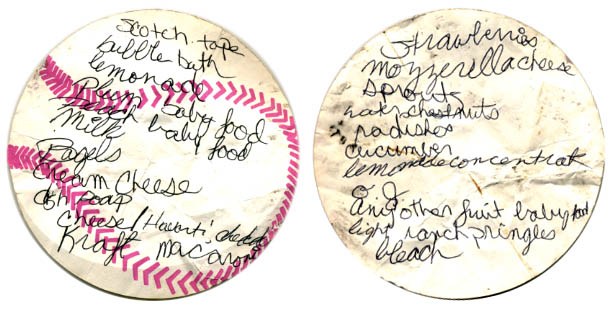 Scotch tape
bubble bath
lemonade
Plum baby food
peach baby food
Milk
Bagels
Cream Cheese
dish soap
cheese/Havarti, cheddar
Kraft Macaroni
Strawberries
mozzerella cheese
Sprouts
water chestnuts
radishes
cucumber
lemonade concentrate
O J
Any other fruit baby food
light ranch pringles
bleach